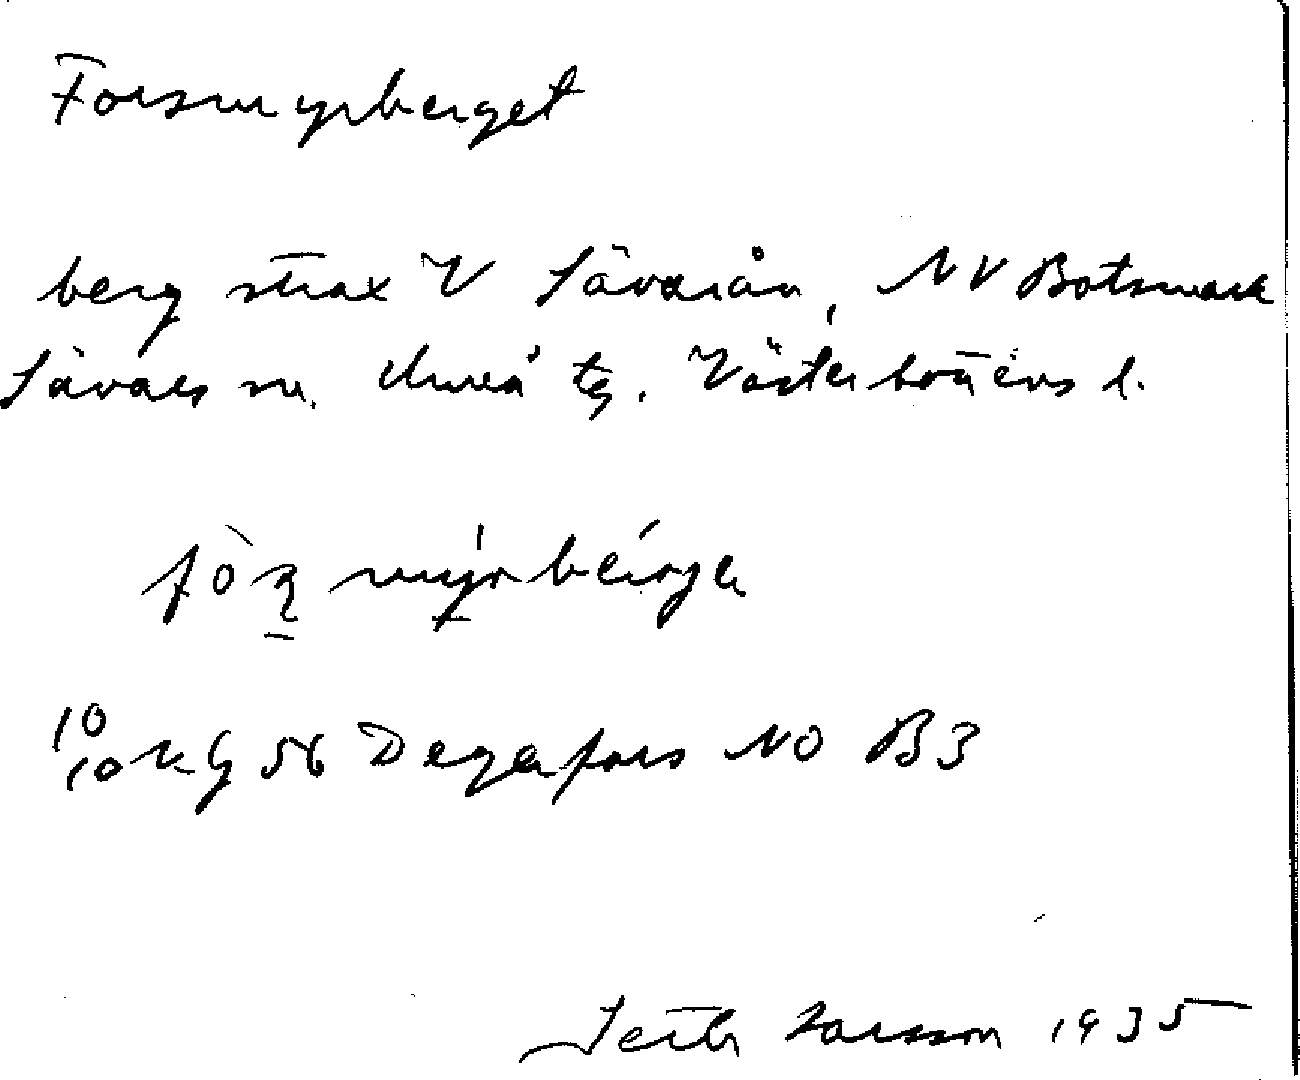 Forsmyrberget
berg strax V Sävarån, NV Botsmark
Sävars sn. Umeå tg. Västerbottens l.
10/10 k G 56 Degerfors NO B3
Seth Larsson 1935